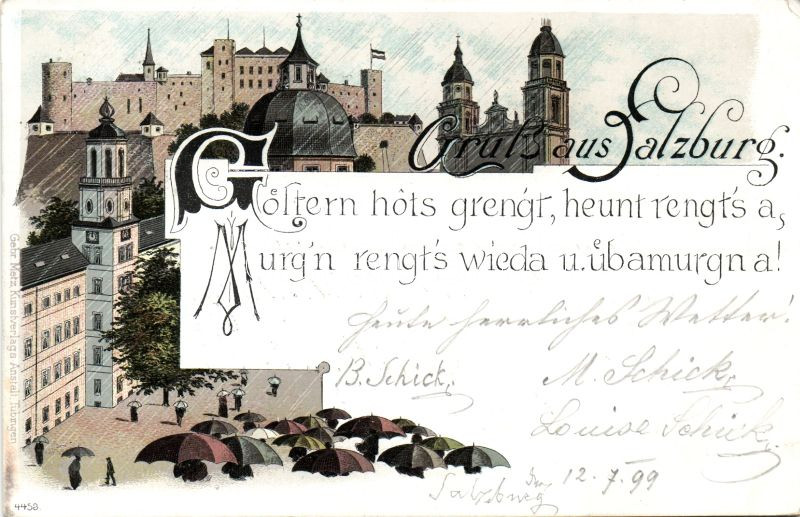 Gruſs aus Salzburg.
Göſtern hôts grengt, heunt rengt's a,
Murg'n rengt's wieda u. übamurgn a!
Heute herrliches Wetter!
B. Schick,
M. Schick,
Louise Schick,
Salzburg den 12.7.99
Gebr. Metz, Kunstverlags Anstalt, Tübingen
4459.